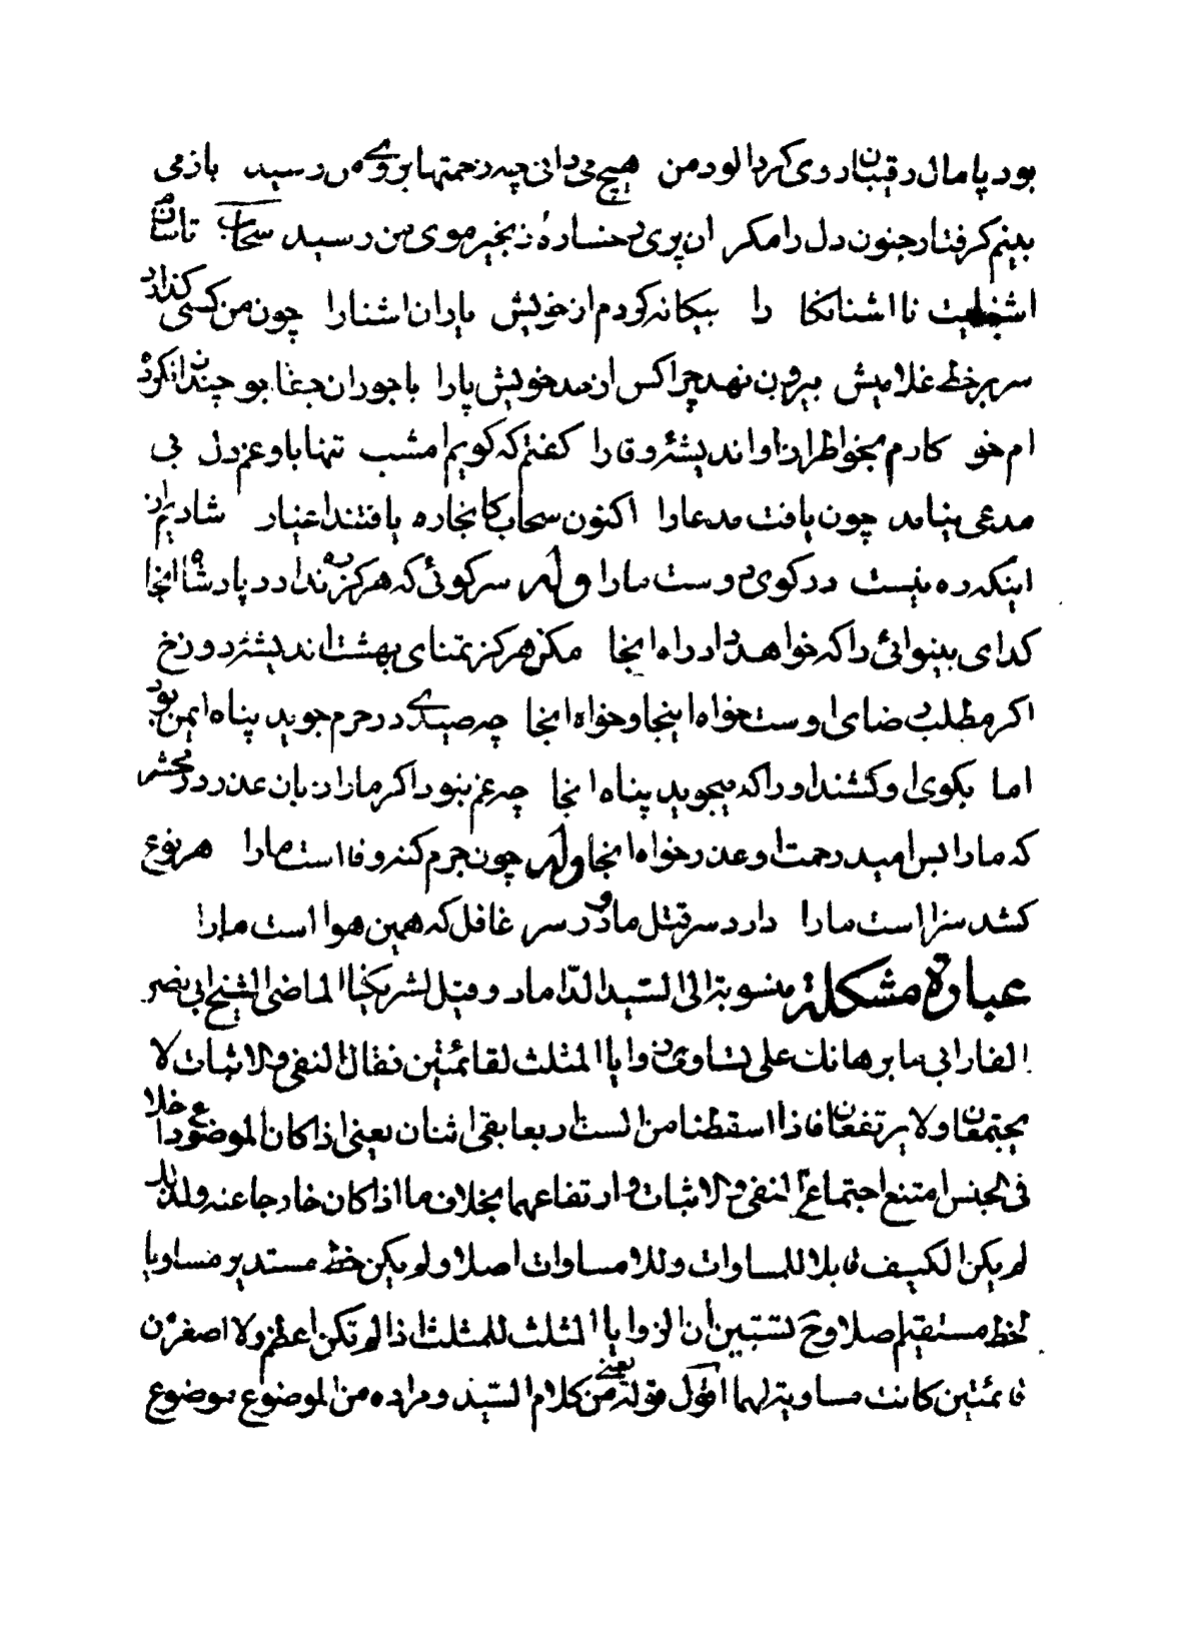 بود پامال رقیبان روی گرد الود من هیچ میدانی چه زحمتها بروی من رسید بازمی
بینم گرفتار جنون دل را مگر ان پری رخساره زنجیر موی من رسید سحاب تا شان
اشنائیت نا اشنا نگا را بیگانه کردم از خویش یاران اشنا را چون من کسی گذارد
سر بر خط غلامیش بیرون نهد چرا کس از حد خویش پا را با جور ان جفا جو چندان کرده
ام خو کارم بخواطر از او اندیشهٔ وفا را گفتم که گویم امشب تنها باو غم دل بی
مدعی نیامد چون یافت مدعا را اکنون سحاب کانجا ره یافتند اغیار شادیم از
اینکه ره نیست در کوی دوست ما را وله سر کوئی که هرگز ره ندارد پادشاه انجا
گدای بینوائی را که خواهد داد راه انجا مکن هرگز تمنای بهشت اندیشهٔ دوزخ
اگر مطلب رضای اوست خواه اینجا و خواه انجا چه صیدی در حرم جوید پناه ایمن بود
اما بکوی او کشند او را که میجوید پناه انجا چه غم نبود اگر ما را زبان عذر در محشر
که ما را بس امید رحمت او عذر خواه انجا وله چون جرم گنه وفا است ما را هر نوع
کشد سزا است ما را دارد سر قتل ما و در سر غافل که همین هوا است ما را
عبارة مشکلة منسوبة الی السید الداماد و قیل لشریکنا الماضی الشیخ ابی نصر
الفارابی ما برهانک علی تساوی زوایا المثلث لقائمتین فقال النفی و الاثبات لا
یجتمعان و لا یرتفعان فاذا اسقطنا من الست اربعا بقی اثنان یعنی اذا کان الموضوع داخلا
فی الجنس امتنع اجتماع النفی و الاثبات و ارتفاعهما بخلاف ما اذا کان خارجا عنه و لذلک
لم یکن الکیف قابلا للمساوات و للا مساوات اصلا و لم یکن خط مستدیر مساویا
لخط مستقیم اصلا و ح تستبین ان الزوایا الثلث للمثلث اذا لم تکن اعظم و لا اصغر من
قائمتین کانت مساویة لهما اقول قوله یعنی من کلام السید و مراده من الموضوع موضوع